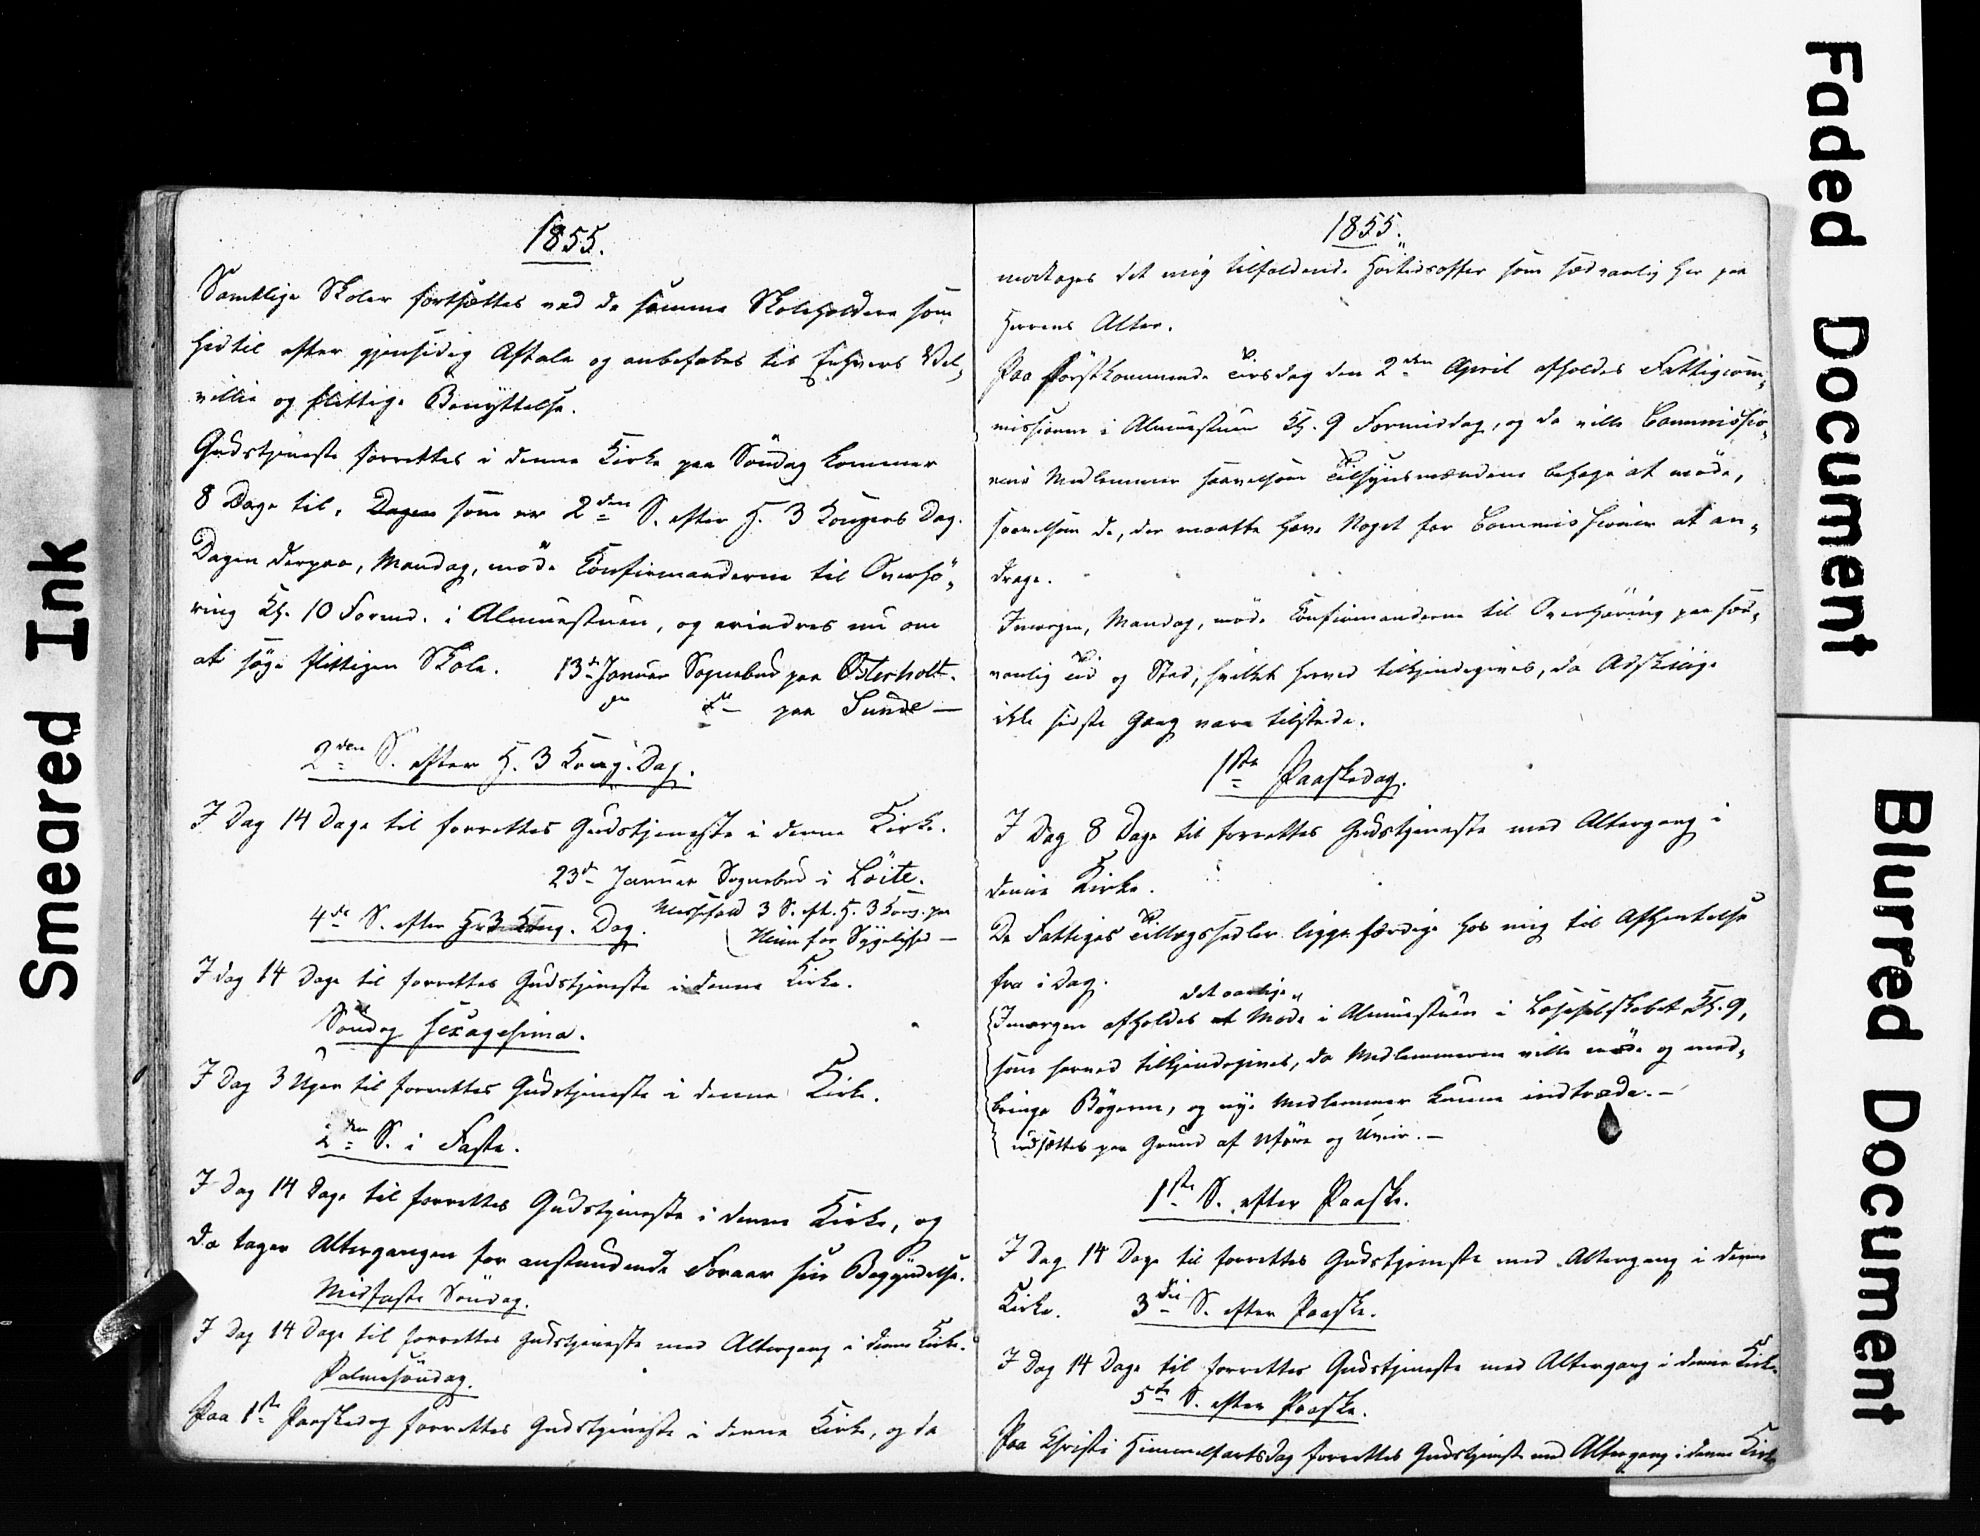 1855.
Samtlige Skoler fortsættes ved de samme Skoleholdere som
hidtil efter gjensidig Aftale og anbefales til Enhvers Vel-
villie og flittige Benyttelse.
Gudstjeneste forrettes i denne Kirke paa Söndag kommer
8 Dage til, Dagen som er 2den S. efter H. 3 Kongers Dag.
Dagen derpaa, Mandag, möde Confirmanderne til Overhö-
ring Kl. 10 Formd. i Almuestuen, og erindres nu om
at söge flittigen Skole. 13de Januar Sognebud paa Österholt.
paa Sunde —
2den S. efter H. 3 Kong. Dag.
I Dag 14 Dage til forrettes Gudstjeneste i denne Kirke.
23de Januar Sognebud i Löite.
4de S. efter H. 3 Kong. Dag. Messefald 3 S. eft. H. 3 Kong. paa
for Sygelighed —
I dag 14 Dage til forrettes Gudstjeneste i denne Kirke.
Söndag Sexagesima.
I Dag 3 Uger til forrettes Gudstjeneste i denne Kirke.
2den S. i Faste.
I Dag 14 Dage til forrettes Gudstjeneste i denne Kirke, og
da tager Altergangen for anstundende Foraar sin Begyndelse.
Midfaste Söndag.
I Dag 14 Dage til forrettes Gudstjeneste med Altergang i denne Kirke.
Palmesöndag.
Paa 1ste Paaskedag forrettes Gudstjeneste i denne Kirke, og da
1855.
modtages det mig tilfaldende Höitidsoffer som sædvanlig her paa
Herrens Alter.
Paa förstkommende Tirsdag den 2den April afholdes Fattigcom-
missionen i Almuestuen Kl. 9 Formiddag, og da ville Commissio-
nens Medlemmer saavelsom Tilsynsmændene behage at möde,
saavelsom de, der maatte have Noget for Commissionen at an-
drage.
Imorgen, Mandag, möde Confirmanderne til Overhöring paa sæd-
vanlig Tid og Sted, hvilket herved tilkjendegives, da Adskillige
ikke sidste Gang vare tilstede.
1ste Paaskedag.
I Dag 8 Dage til forrettes Gudstjeneste med Altergang i
denne Kirke.
De Fattiges Tillægssedler ligge færdige hos mig til Afhentelse
fra i Dag.
det aarlige
Imorgen afholdes et Möde i Almuestuen i Læseselskabet Kl. 9,
som herved tilkjendegives, da Medlemmerne ville möde og med-
bringe Bögerne, og nye Medlemmer kunne indtræde. —
udsættes paa Grund af Uföre og Uveir. —
1ste S. efter Paaske.
I Dag 14 Dage til forrettes Gudstjeneste med Altergang i denne
Kirke. 3die S. efter Paaske.
I Dag 14 Dage til forrettes Gudstjeneste med Altergang i denne Kirke.
5te S. efter Paaske.
Paa Christi Himmelfartsdag forrettes Gudstjeneste med Altergang i denne Kirke
Smeared Ink
Faded Document
Blurred Document